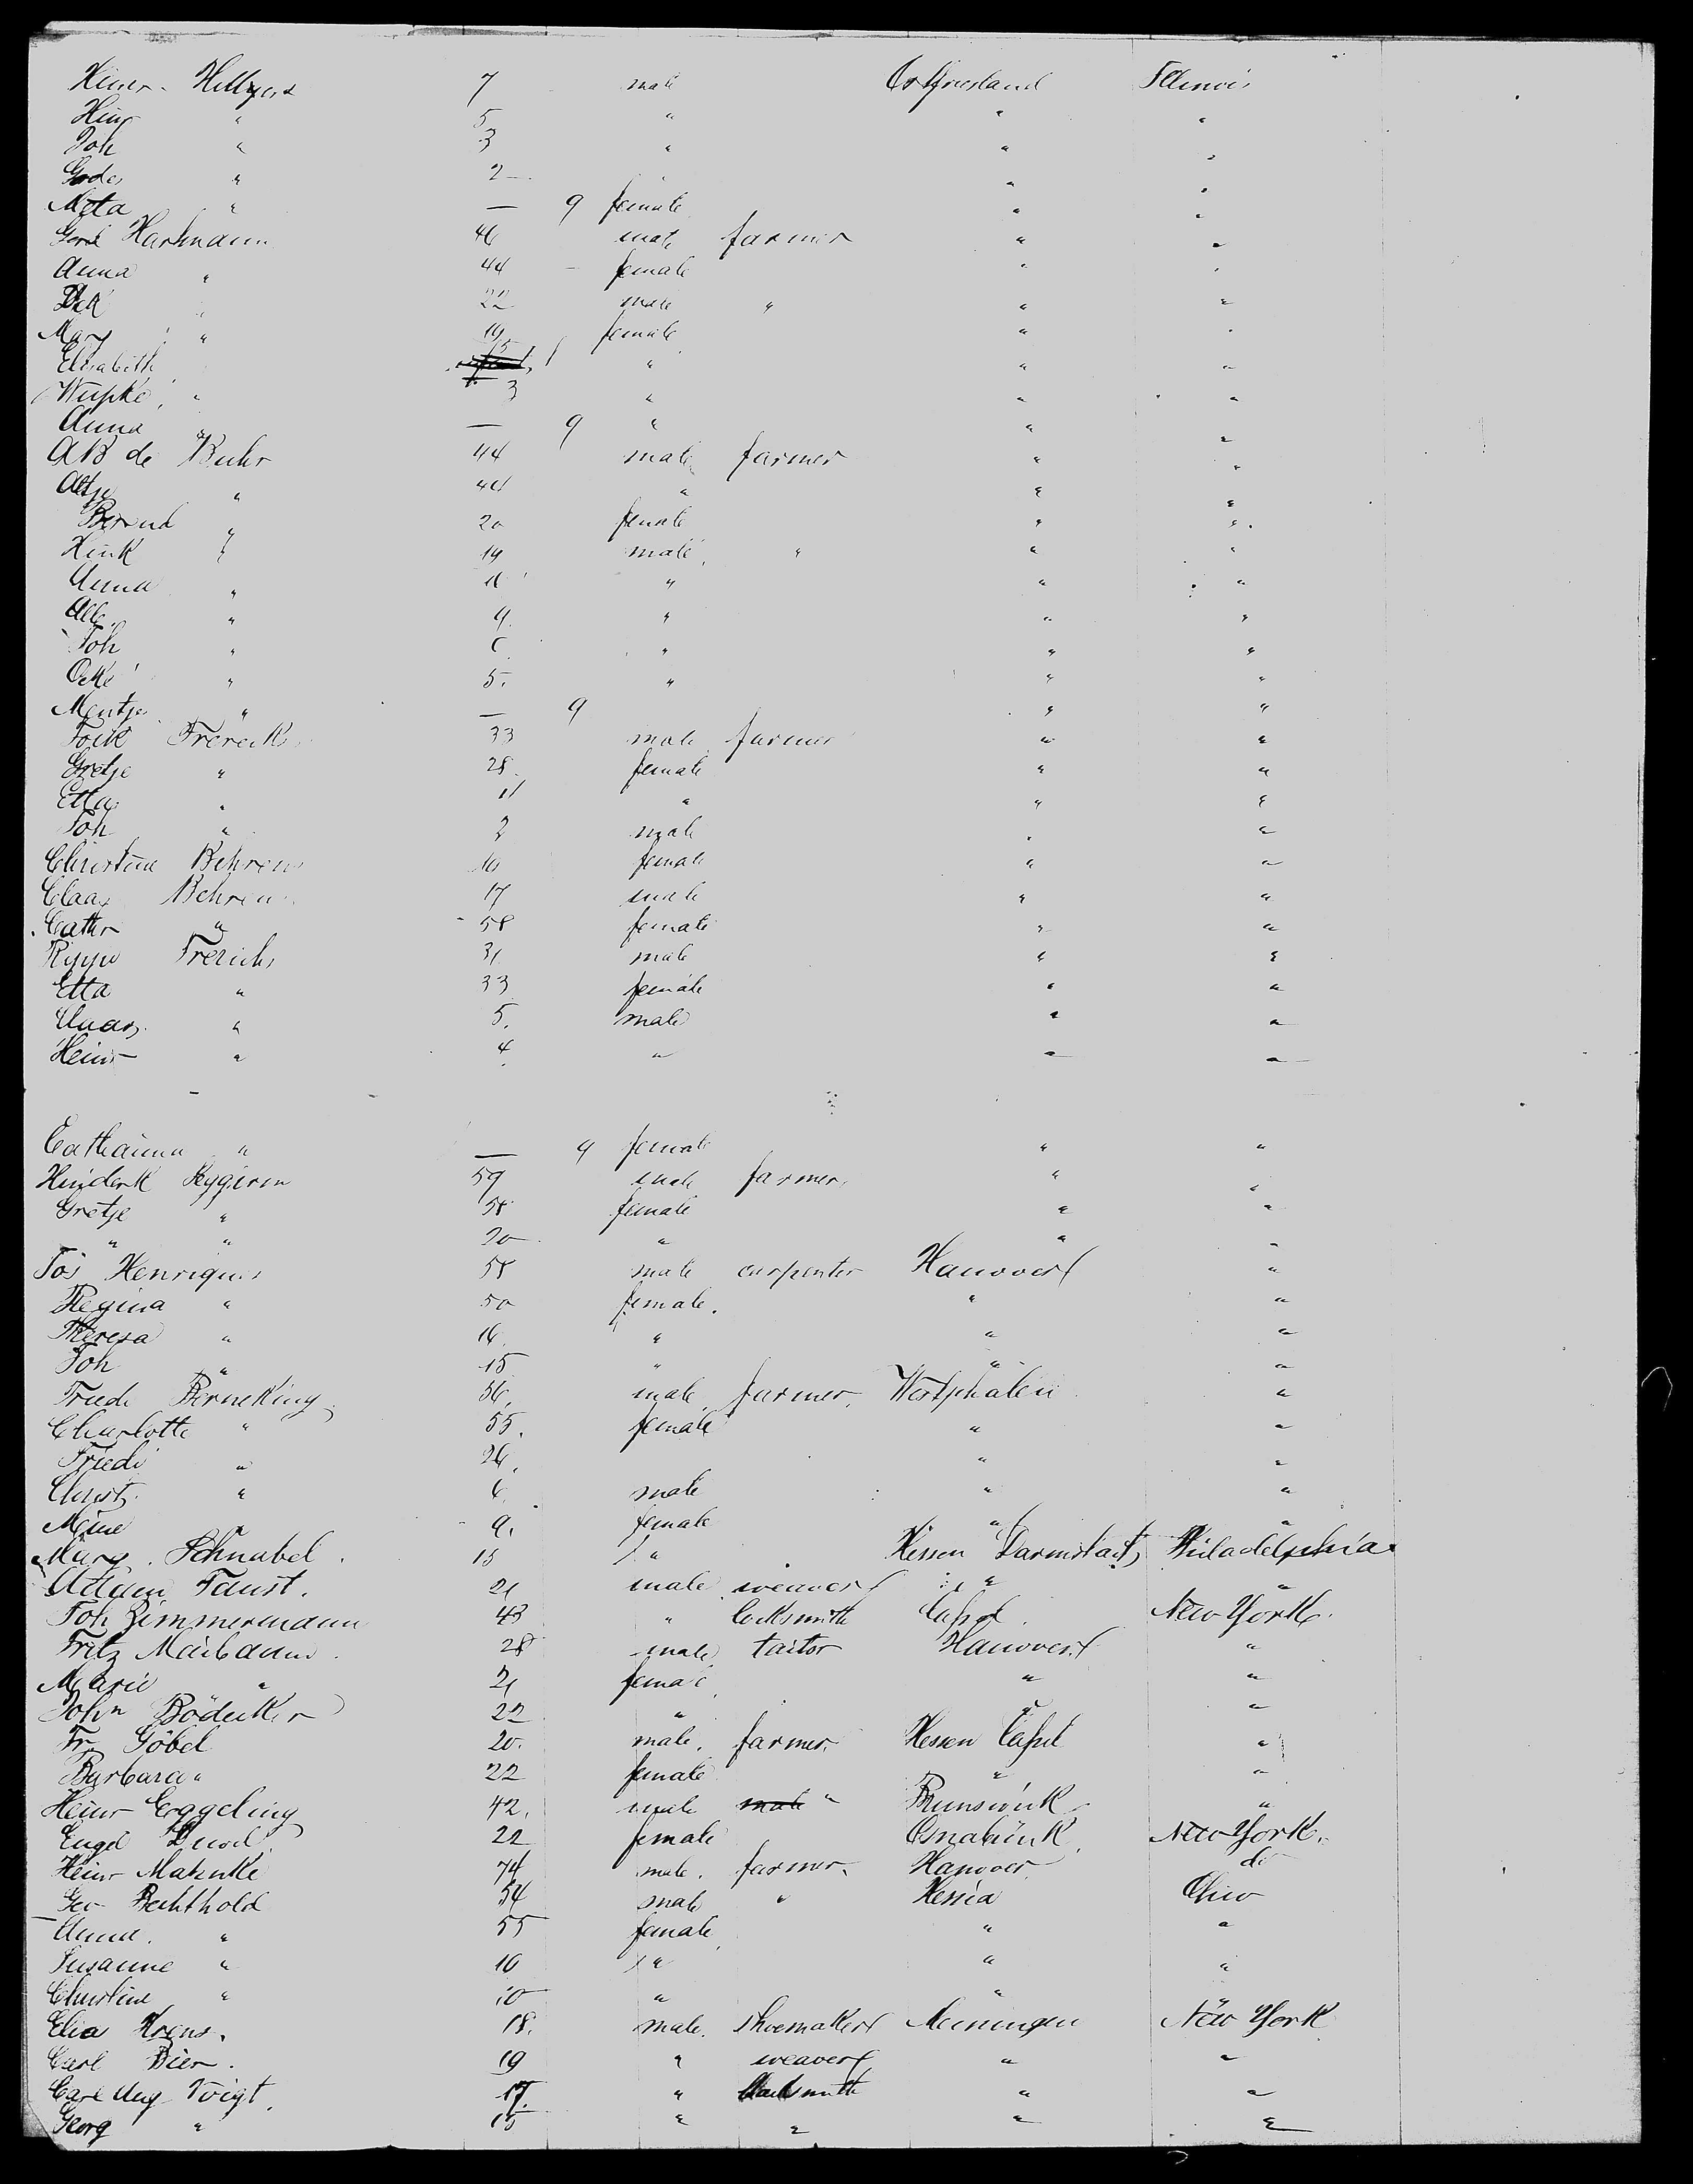 Heinr. Hellyers 7 male Ostfriesland Illinois
Hinr " 5 " " "
Joh " 3 " " "
Gerdes " 2 " " "
Meta " — 9 female " "
Gerd Hartmann 46 male farmer " "
Anna " 44 female " "
Dirk " 22 male " " "
Mary " 19 female " "
Elisabeth 15 " " "
Wupke " 3 " " "
Anna " — 9 " " "
AB de Buhr 44 male farmer " "
Altje " 44 " " "
Berend " 20 female " "
Hink " 19 male " " "
Anna " 11 " " "
Alb. " 9 " " "
Joh " 6 " " "
Ocke " 5. " " "
Mentje " — 9 " "
Fock Frererks 33 male farmer " "
Gretje " 28 female " "
Etta " 11 " " "
Joh " 2 male " "
Christine Behrens 16 female " "
Claas Behrens 17 male " "
Cathr " 58 female " "
Rippe Frerichs 31 male " "
Etta " 33 female " "
Claas " 5. male " "
Heinr " 4 " " "
Catharina " — 9 female " "
Hinderk 59 male farmer " "
Gretje " 58 female " "
" " 20 " " "
Jos Henriques 58 male carpenter Hanover "
Regina " 50 female. " "
Theresa " 16 " " "
Joh " 15 " " "
Friedr Berneking 56 male farmer Westphalen "
Charlotte " 55. female " "
Friedr " 26. " "
Christ. " 6. male " "
Mine " 9. female " "
Marg. Schnabel. 15 " Hessen Darmstadt Philadelphia
Adam Faust. 21 male weaver " "
Joh Zimmermann 43 " locksmith Cassel. New York.
Fritz Maibaum. 28 male tailor Hanover "
Marie " 21 female " "
John Bödeker 22 " " "
Fr. Göbel 20. male. farmer. Hessen Cassel "
Barbara " 22 female " "
Heinr Eggeling 42. male male " Brunswick "
Engel 22 female Osnabrück New York.
Heinr Mahnke 74 male. farmer. Hanover do
Geo Bechthold 54 male " Hessia Ohio
Anna. " 55 female " "
Susanne " 16 " " "
Christine " 10 " " "
Elia Krens. 18. male. Shoemaker Meiningen New York
Carl Bier. 19 " weaver " "
Carl Aug Voigt. 17. " locksmith " "
Georg " 15 " " " "